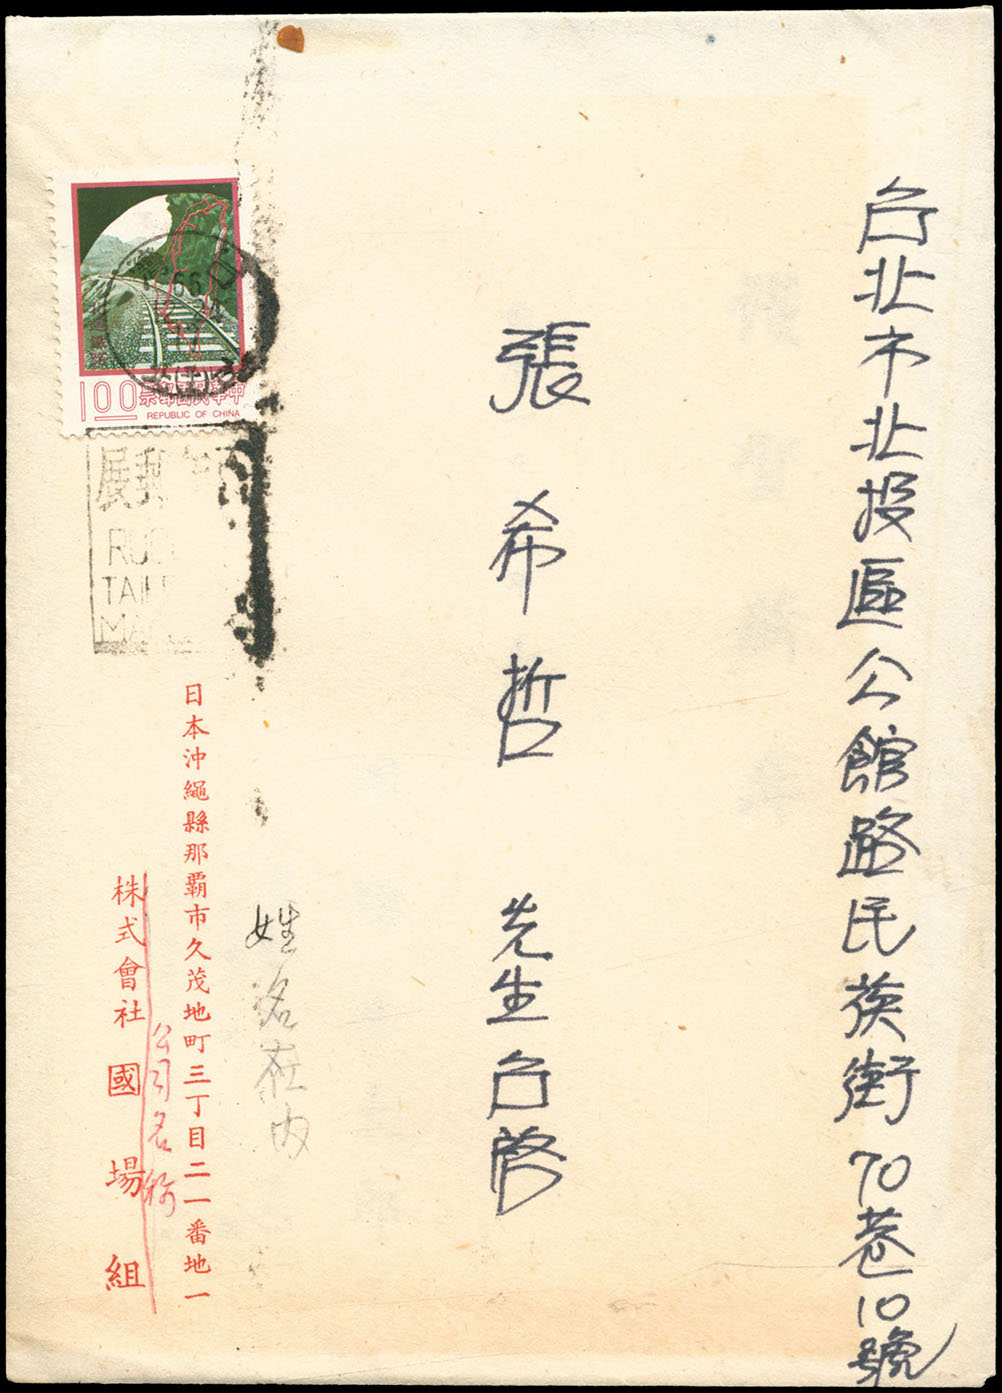 台北市北投區公館路民族街70巷10號
張希哲 先生台啓
姓名在內
日本沖繩縣那覇市久茂地町三丁目二一番地一
公司名称
株式會社國場組
中華民國郵票
1 00
REPUBLIC OF CHINA
郵展